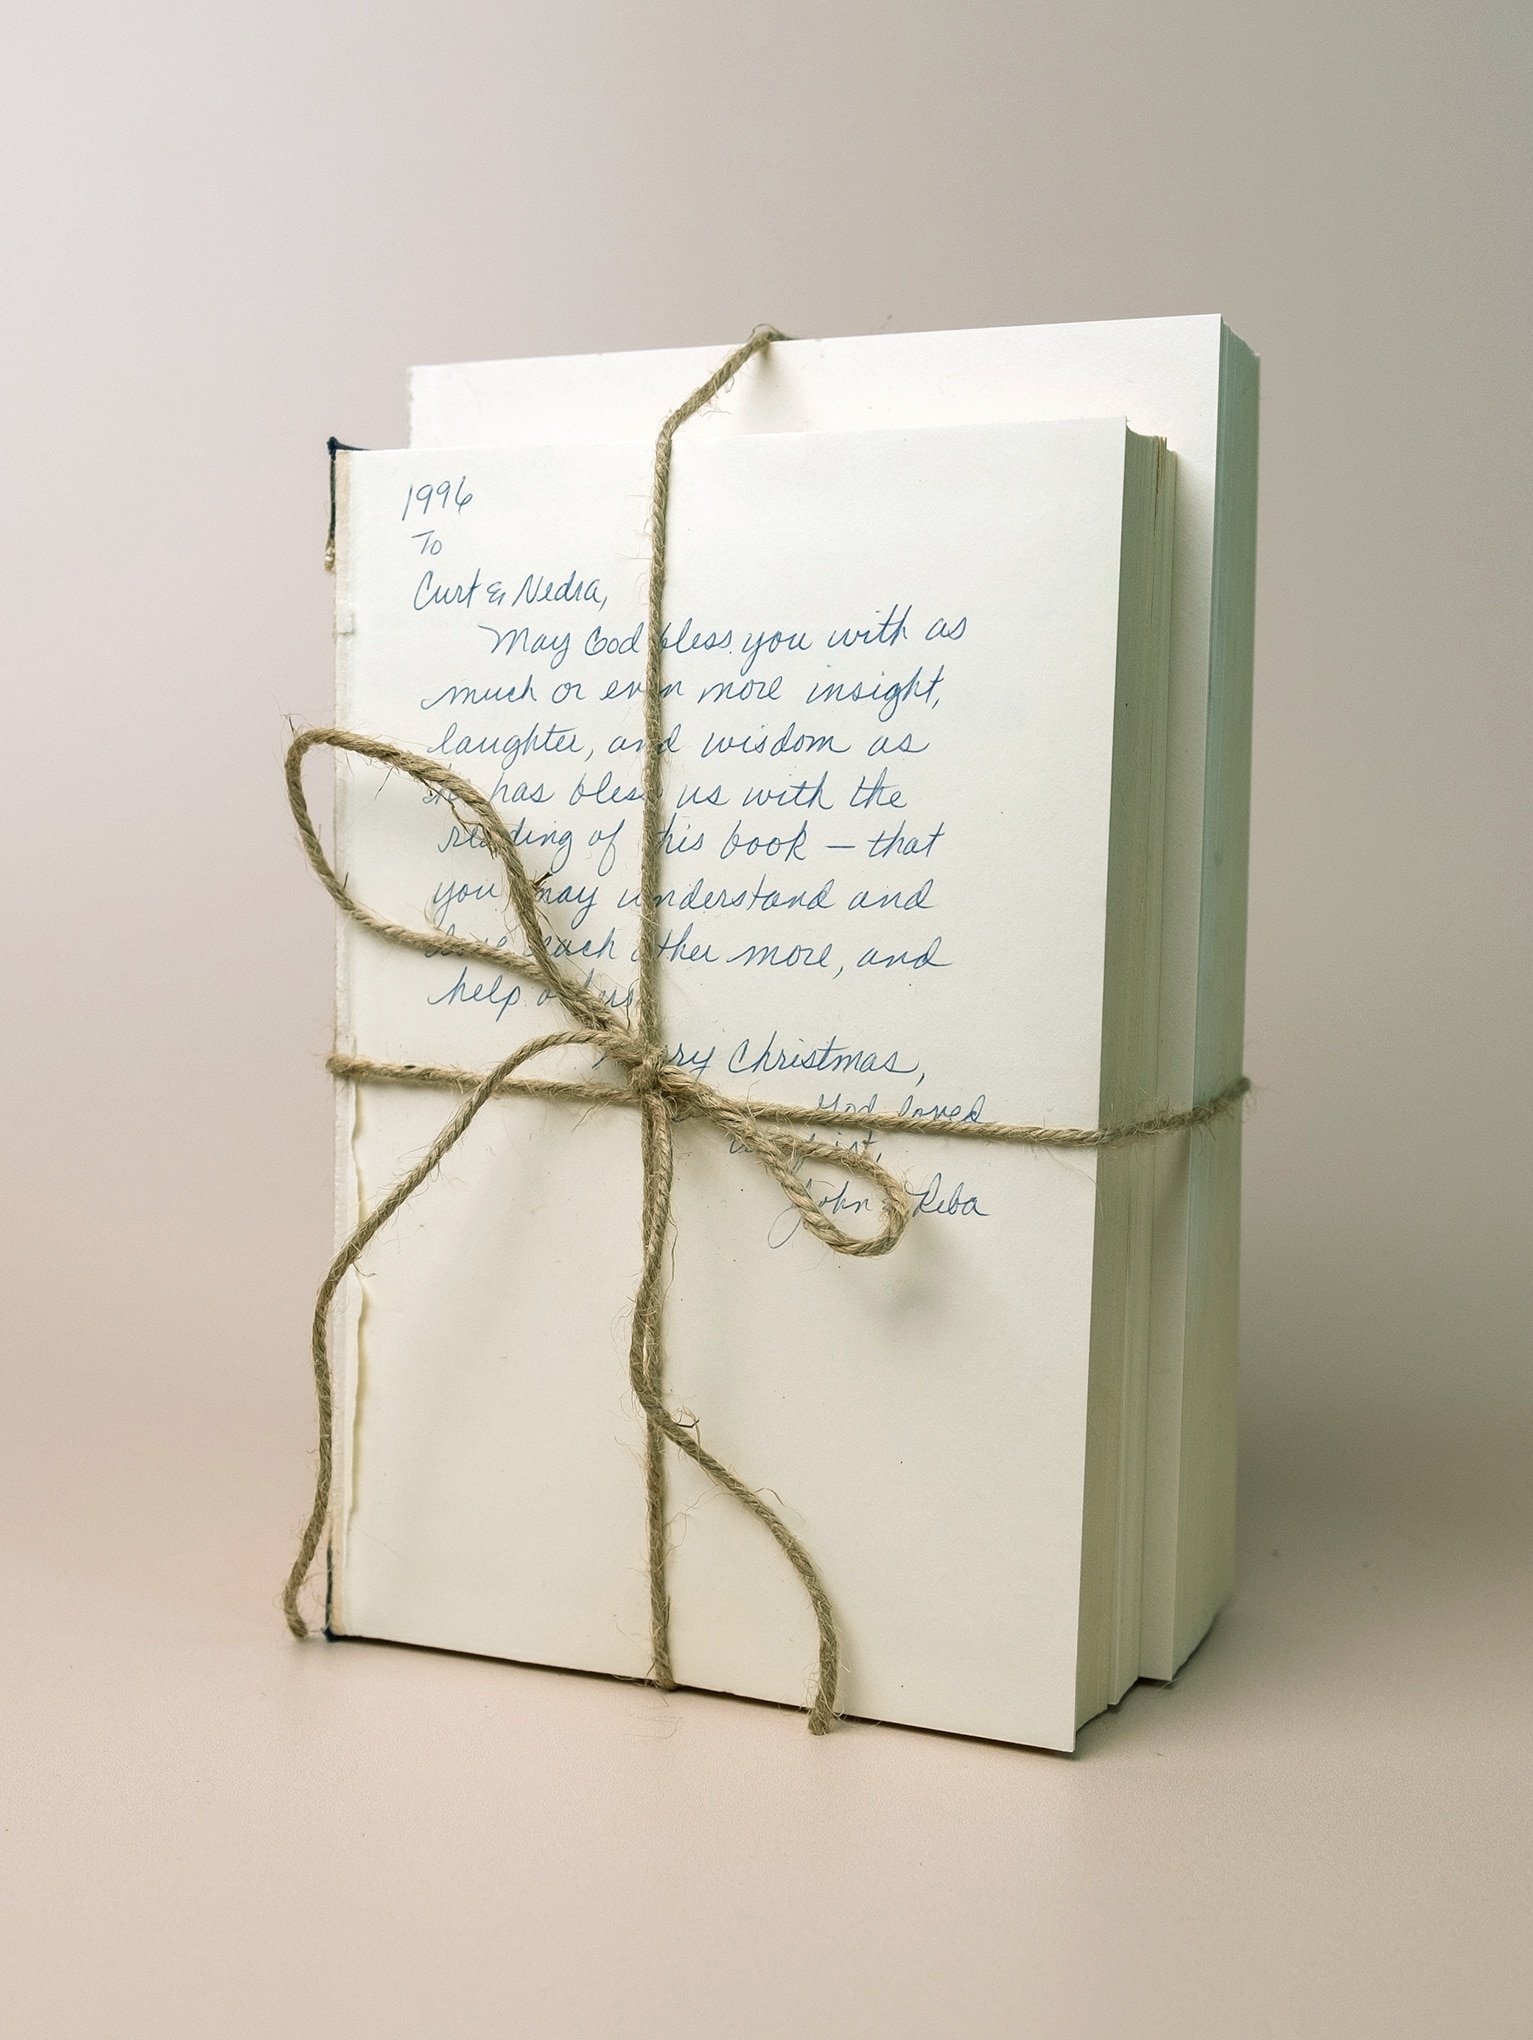 1996
To
Curt & Nedra,
May God bless you with as
much or even more insight,
laughter, and wisdom as
he has bless us with the
reading of this book — that
you may understand and
love each other more, and
help others.
Merry Christmas,
God loved
us first,
John & Reba